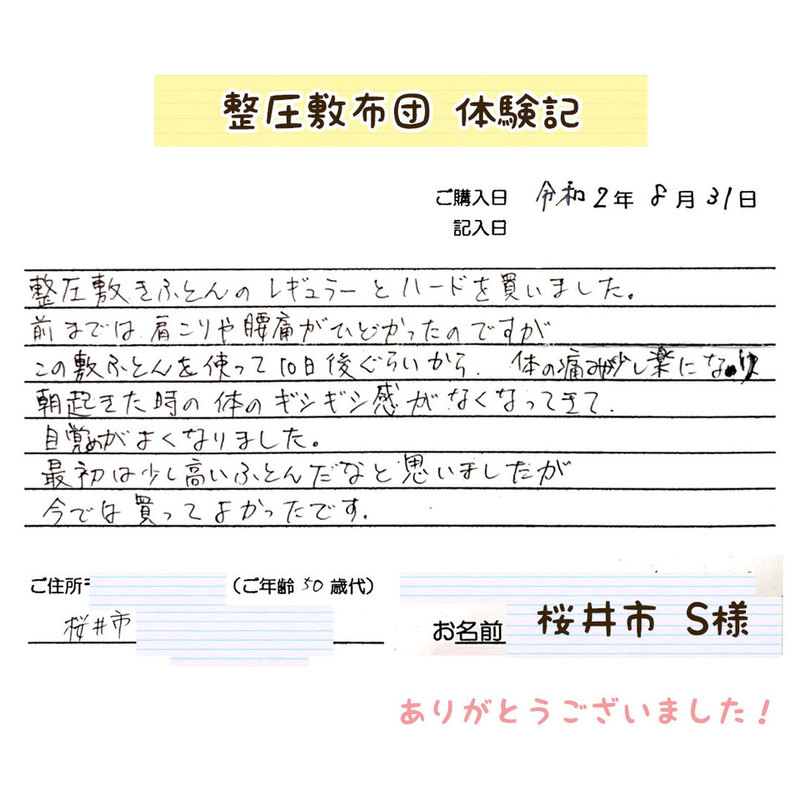 整圧敷布団 体験記
ご購入日 令和2年8月31日
記入日
整圧敷きふとんのレギュラーとハードを買いました。
前までは肩こりや腰痛がひどかったのですが
この敷ふとんを使って10日後ぐらいから、体の痛みが少し楽になり
朝起きた時の体のギシギシ感がなくなってきて、
目覚めがよくなりました。
最初は少し高いふとんだなと思いましたが
今では買ってよかったです。
ご住所〒 (ご年齢 50 歳代)
桜井市
お名前 桜井市 S様
ありがとうございました!